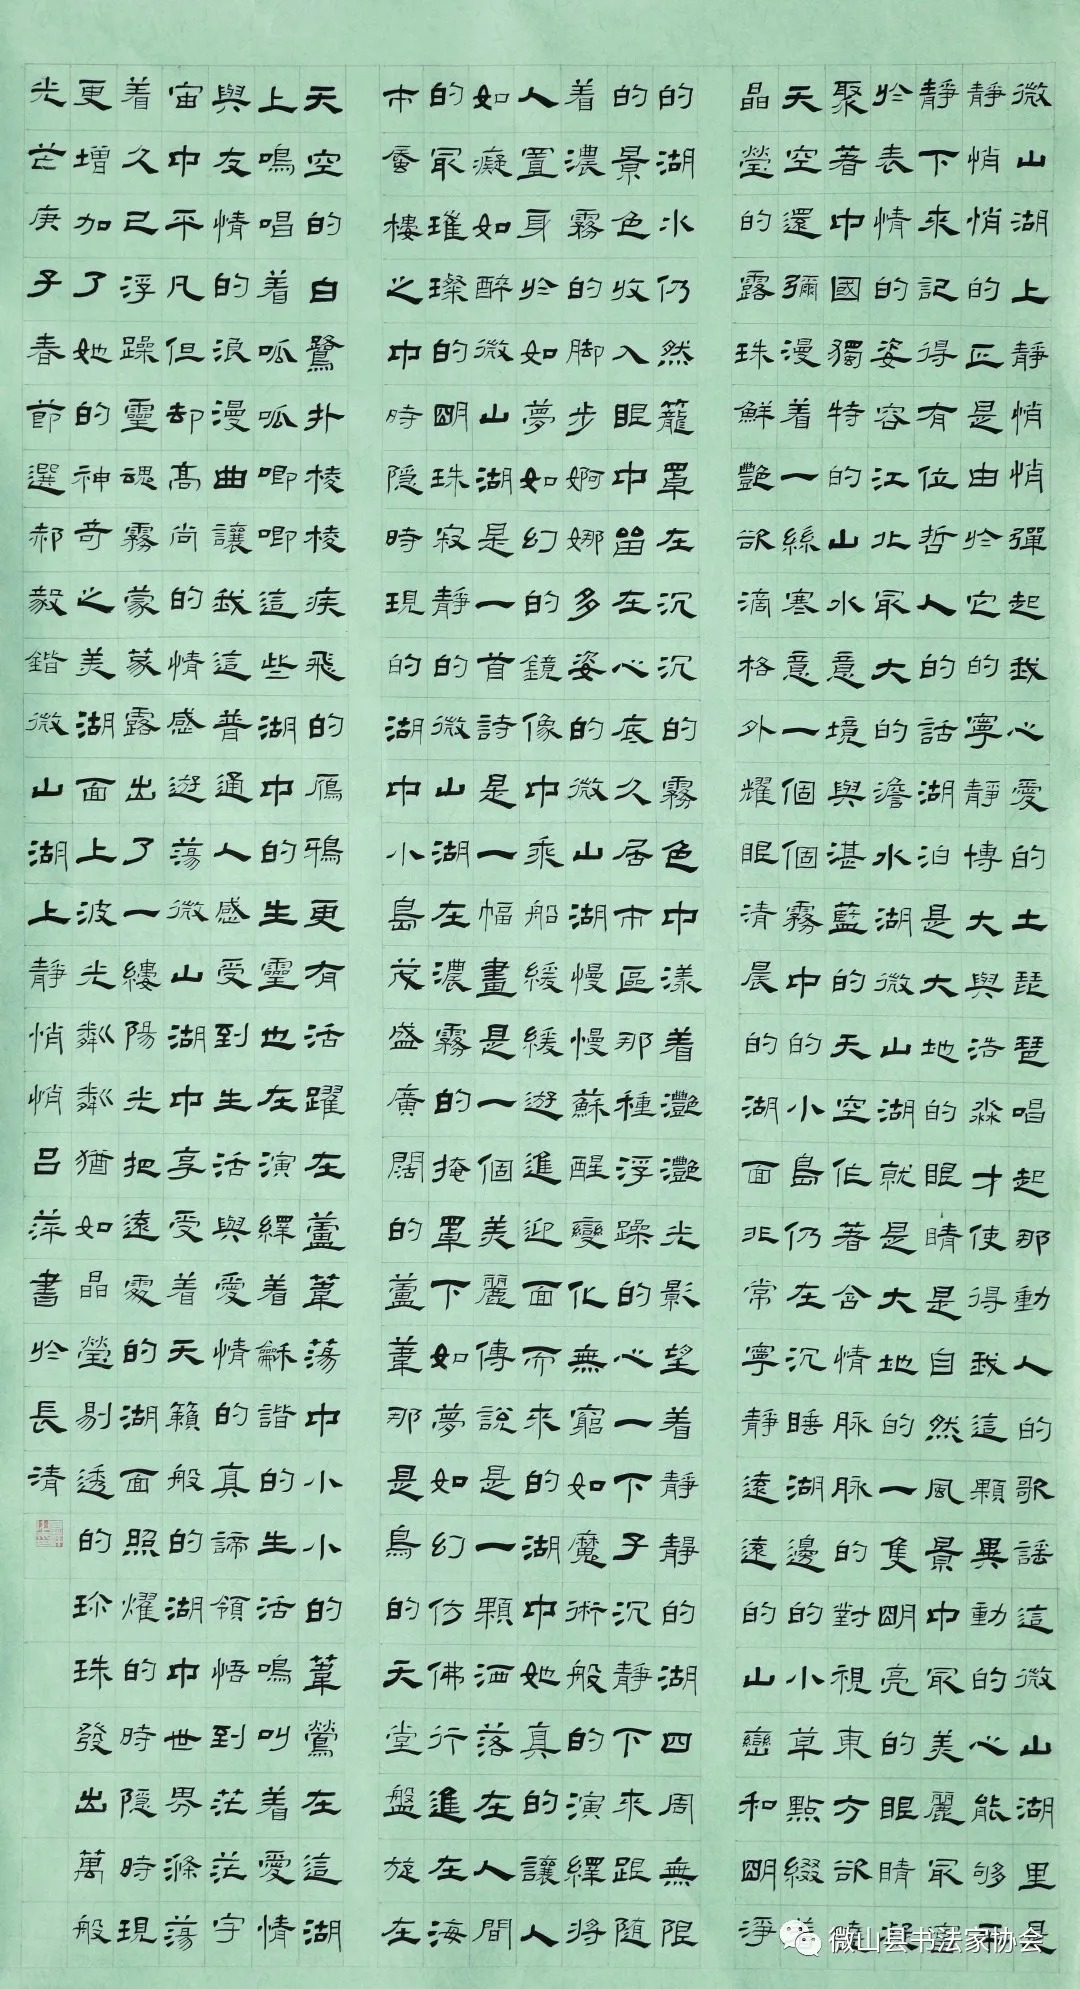 微山湖上靜悄悄彈起我心愛的土琵琶唱起那動人的歌謠這微山湖里是
靜悄悄的正是由於它的寧靜博大與浩淼才使得我這顆異動的心能够平
靜下來記得有位哲人的話湖泊是大地的眼睛是自然風景中最美麗最富
於表情的姿容江北最大的澹水湖微山湖就是大地的一隻明亮的眼睛凝
聚著中國獨特的山水意境與湛藍的天空作著含情脈脈的對視東方欲曉
天空還彌漫着一絲寒意一個個霧中的小島仍在沉睡湖邊的小草點綴着
晶瑩的露珠鮮艷欲滴格外耀眼清晨的湖面非常寧靜遠遠的山巒和明淨
的湖水仍然籠罩在沉沉的霧色中漾着灔灔光影望着靜靜的湖四周無限
的景色收入眼中留在心底久居市區那種浮躁的心一下子沉靜下來跟随
着濃霧的脚步婀娜多姿的微山湖慢慢蘇醒變化無窮如魔術般的演繹將
人置身於如夢如幻的鏡像中乘船緩緩遊進迎面而來的湖中她真的讓人
如癡如醉微山湖是一首詩是一幅畫是一個美麗傳說是一顆洒落在人間
的最璀璨的明珠寂靜的微山湖在濃霧的掩罩下如夢如幻仿佛行進在海
市蜃樓之中時隱時現的湖中小島茂盛廣闊的蘆葦那是鳥的天堂盤旋在
天空的白鷺扑棱棱疾飛的雁鴉更有活躍在蘆葦蕩中小小的葦鶯在這湖
上鳴唱着呱呱唧唧這些湖中的生靈也在演繹着龢諧的生活鳴叫着愛情
與友情的浪漫曲讓我這普通人感受到生活與愛情的真諦領悟到茫茫宇
宙中平凡但却高尚的情感遊蕩微山湖中享受着天籟般的湖中世界滌蕩
着久已浮躁靈魂霧蒙蒙露出了一縷陽光把遠處的湖面照耀的時隱時現
更增加了她的神奇之美湖面上波光粼粼猶如晶瑩剔透的珍珠發出萬般
光芒庚子春節選郝毅鍇微山湖上靜悄悄呂萍書於長清
微山县书法家协会